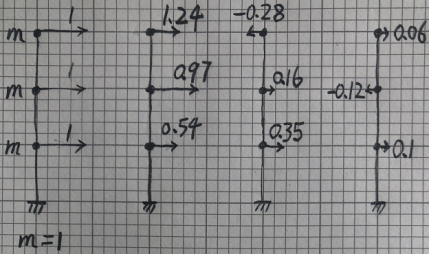 m 1 1.24 -0.28 0.06
m 1 0.97 0.16 -0.12
m 1 0.54 0.35 0.1
m=1